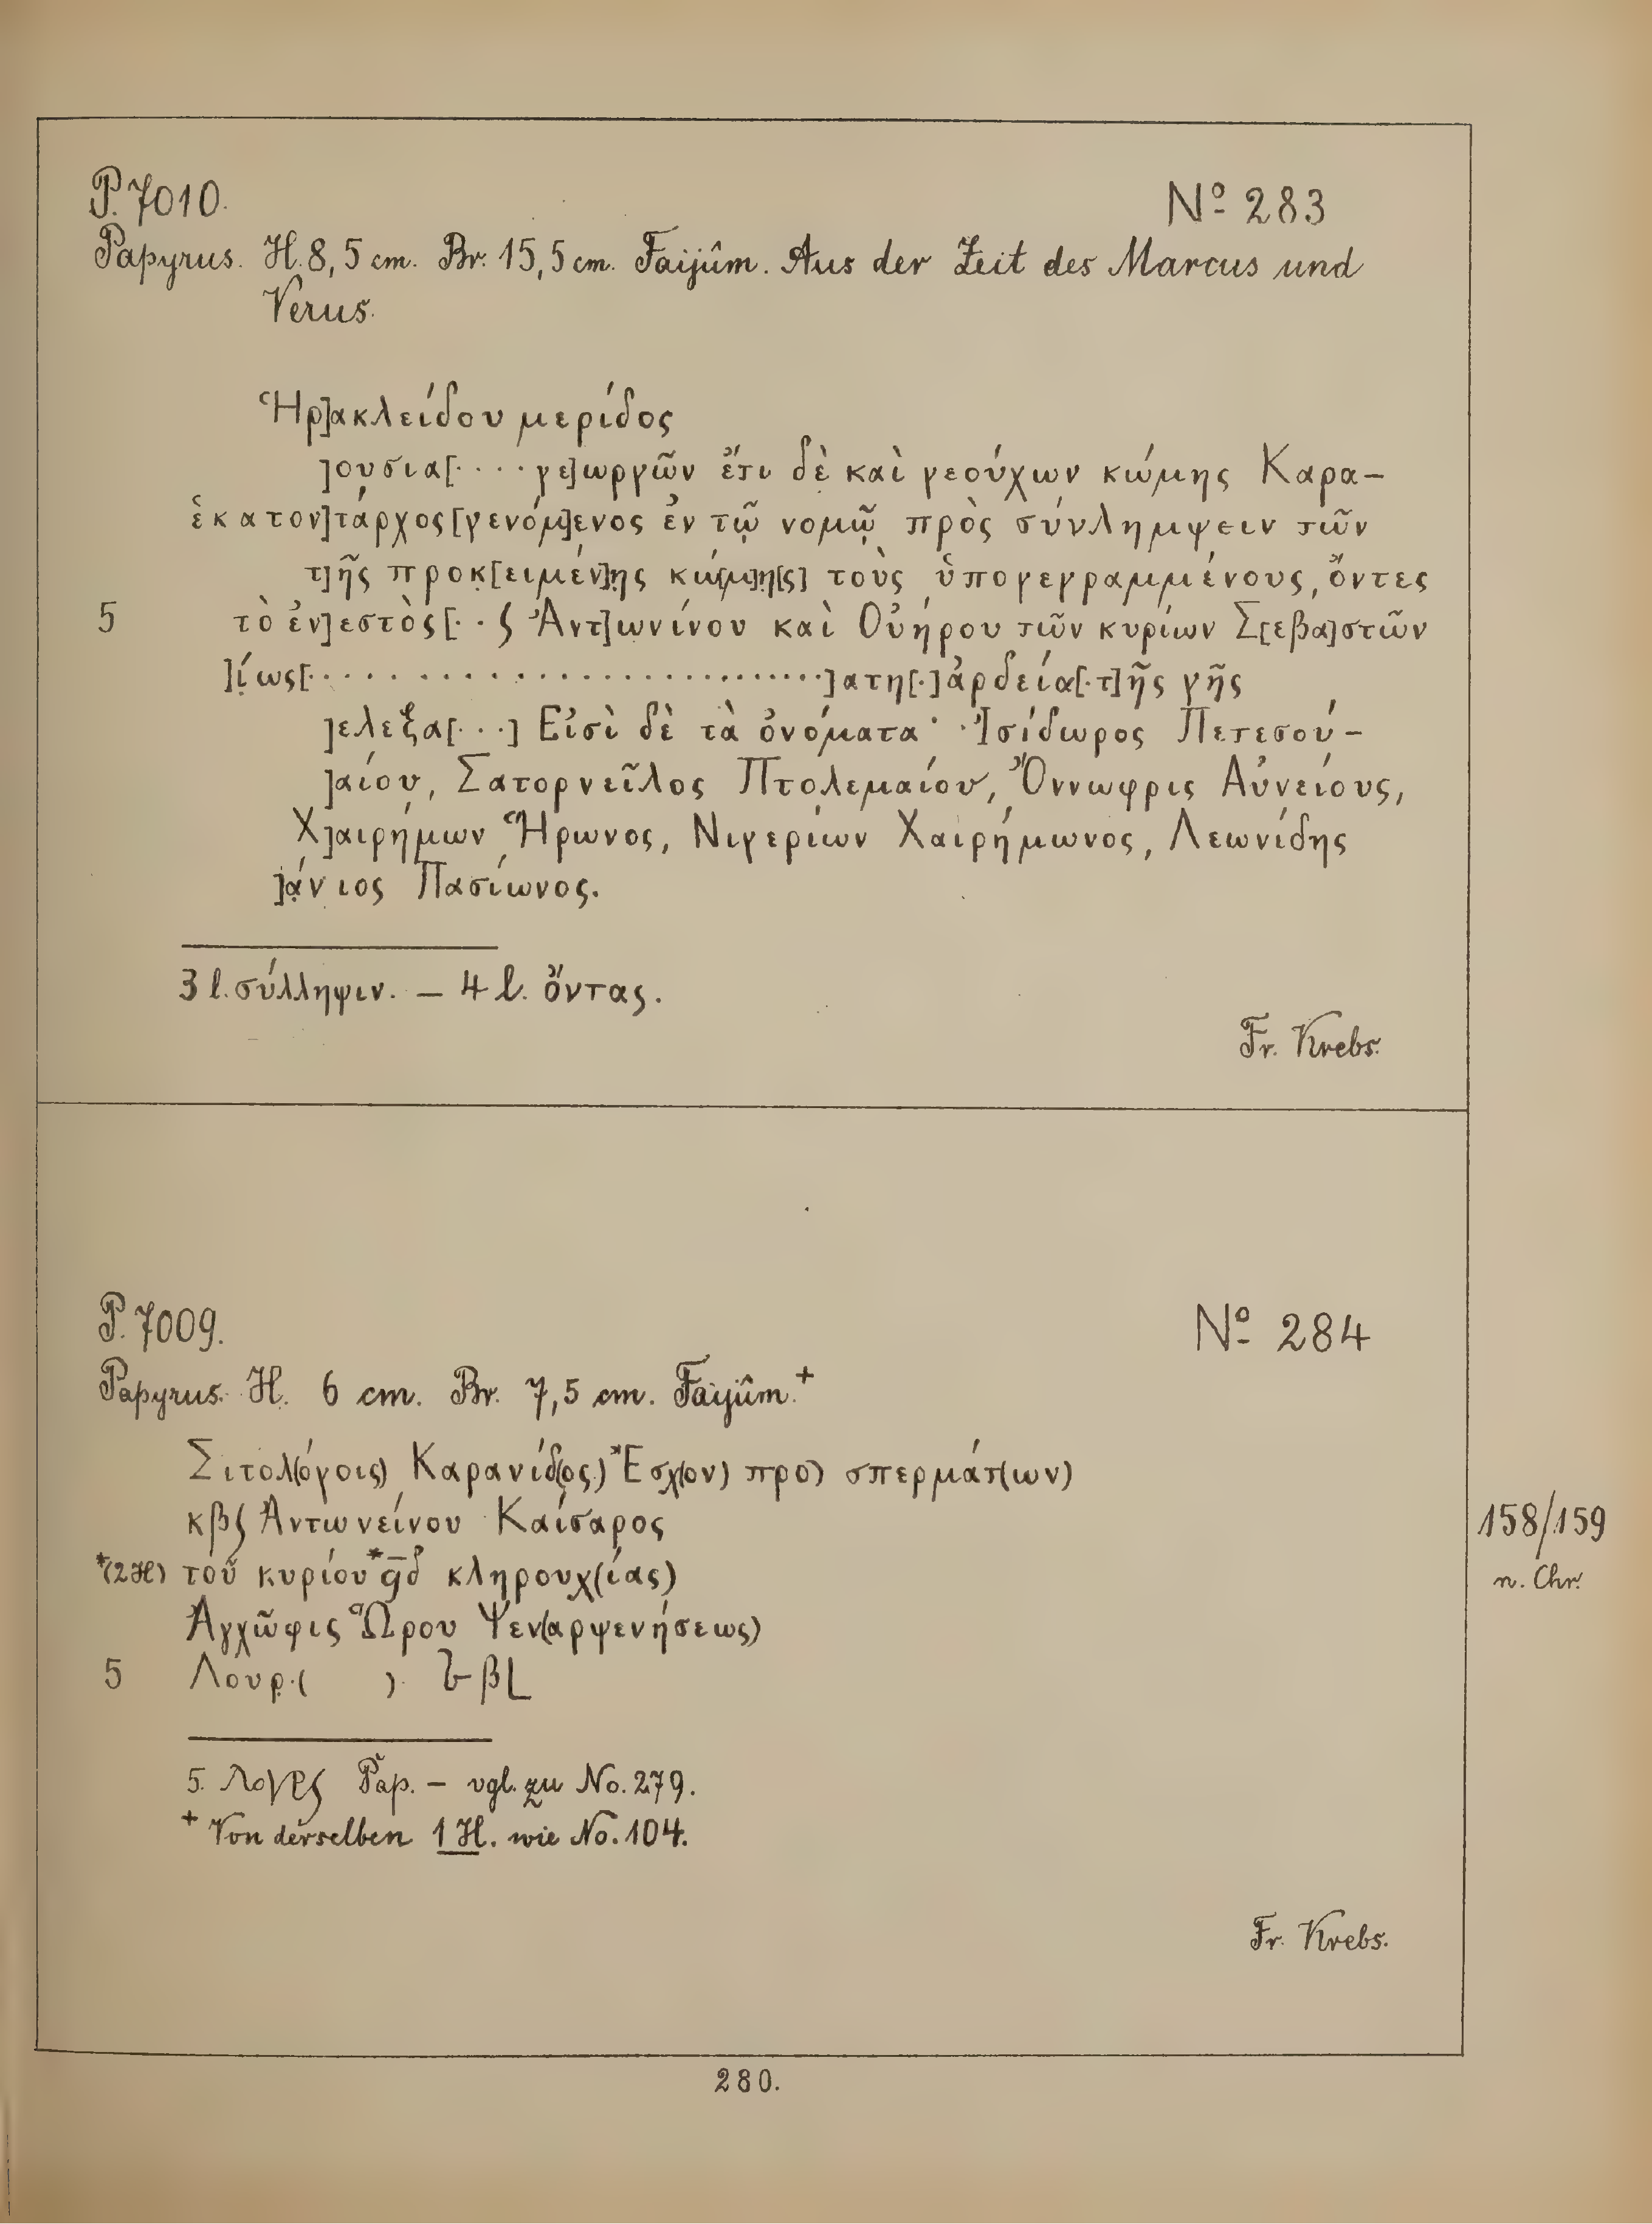 P. 7010. No 283
Papyrus. H. 8,5 cm. Br. 15,5 cm. Faijûm. Aus der Zeit des Marcus und
Verus.
Ἡρ]ακλείδου μερίδος
]ουσια[····γε]ωργῶν ἔτι δὲ καὶ γεούχων κώμης Καρα-
ἑκατον]τάρχος[γενόμ]ενος ἐν τῷ νομῷ πρὸς σύνλημψειν τῶν
τ]ῆς προκ[ειμέν]ης κώ[μ]η[ς] τοὺς ὑπογεγραμμένους, ὄντες
5 τὸ ἐν]εστὸς[··ʃ Ἀντ]ωνίνου καὶ Οὐήρου τῶν κυρίων Σ[εβα]στῶν
]ίως[··························]ατη[·]ἀρδεία[·τ]ῆς γῆς
]ελεξα[···] Εἰσὶ δὲ τὰ ὀνόματα· Ἰσίδωρος Πετεσού-
]αίου, Σατορνεῖλος Πτολεμαίου, Ὄννωφρις Αὐνείους,
Χ]αιρήμων Ἥρωνος, Νιγερίων Χαιρήμωνος, Λεωνίδης
]άνιος Πασίωνος.
3 l. σύλληψιν. — 4 l. ὄντας.
Fr. Krebs.
P. 7009. No 284
Papyrus. H. 6 cm. Br. 7,5 cm. Faijûm.+
Σιτολ(όγοις) Καρανίδ(ος) Ἔσχ(ον) προ) σπερμάτ(ων)
κβʃ Ἀντωνείνου Καίσαρος
158/159
n. Chr.
*(2H) τοῦ κυρίου * ϥδ κληρουχ(ίας)
Ἀγχῶφις Ὥρου Ψεν(αρψενήσεως)
5 Λουρ·( ) βL
5. Pap. – vgl. zu No. 279.
+ Von derselben 1 H. wie No. 104.
Fr. Krebs.
280.